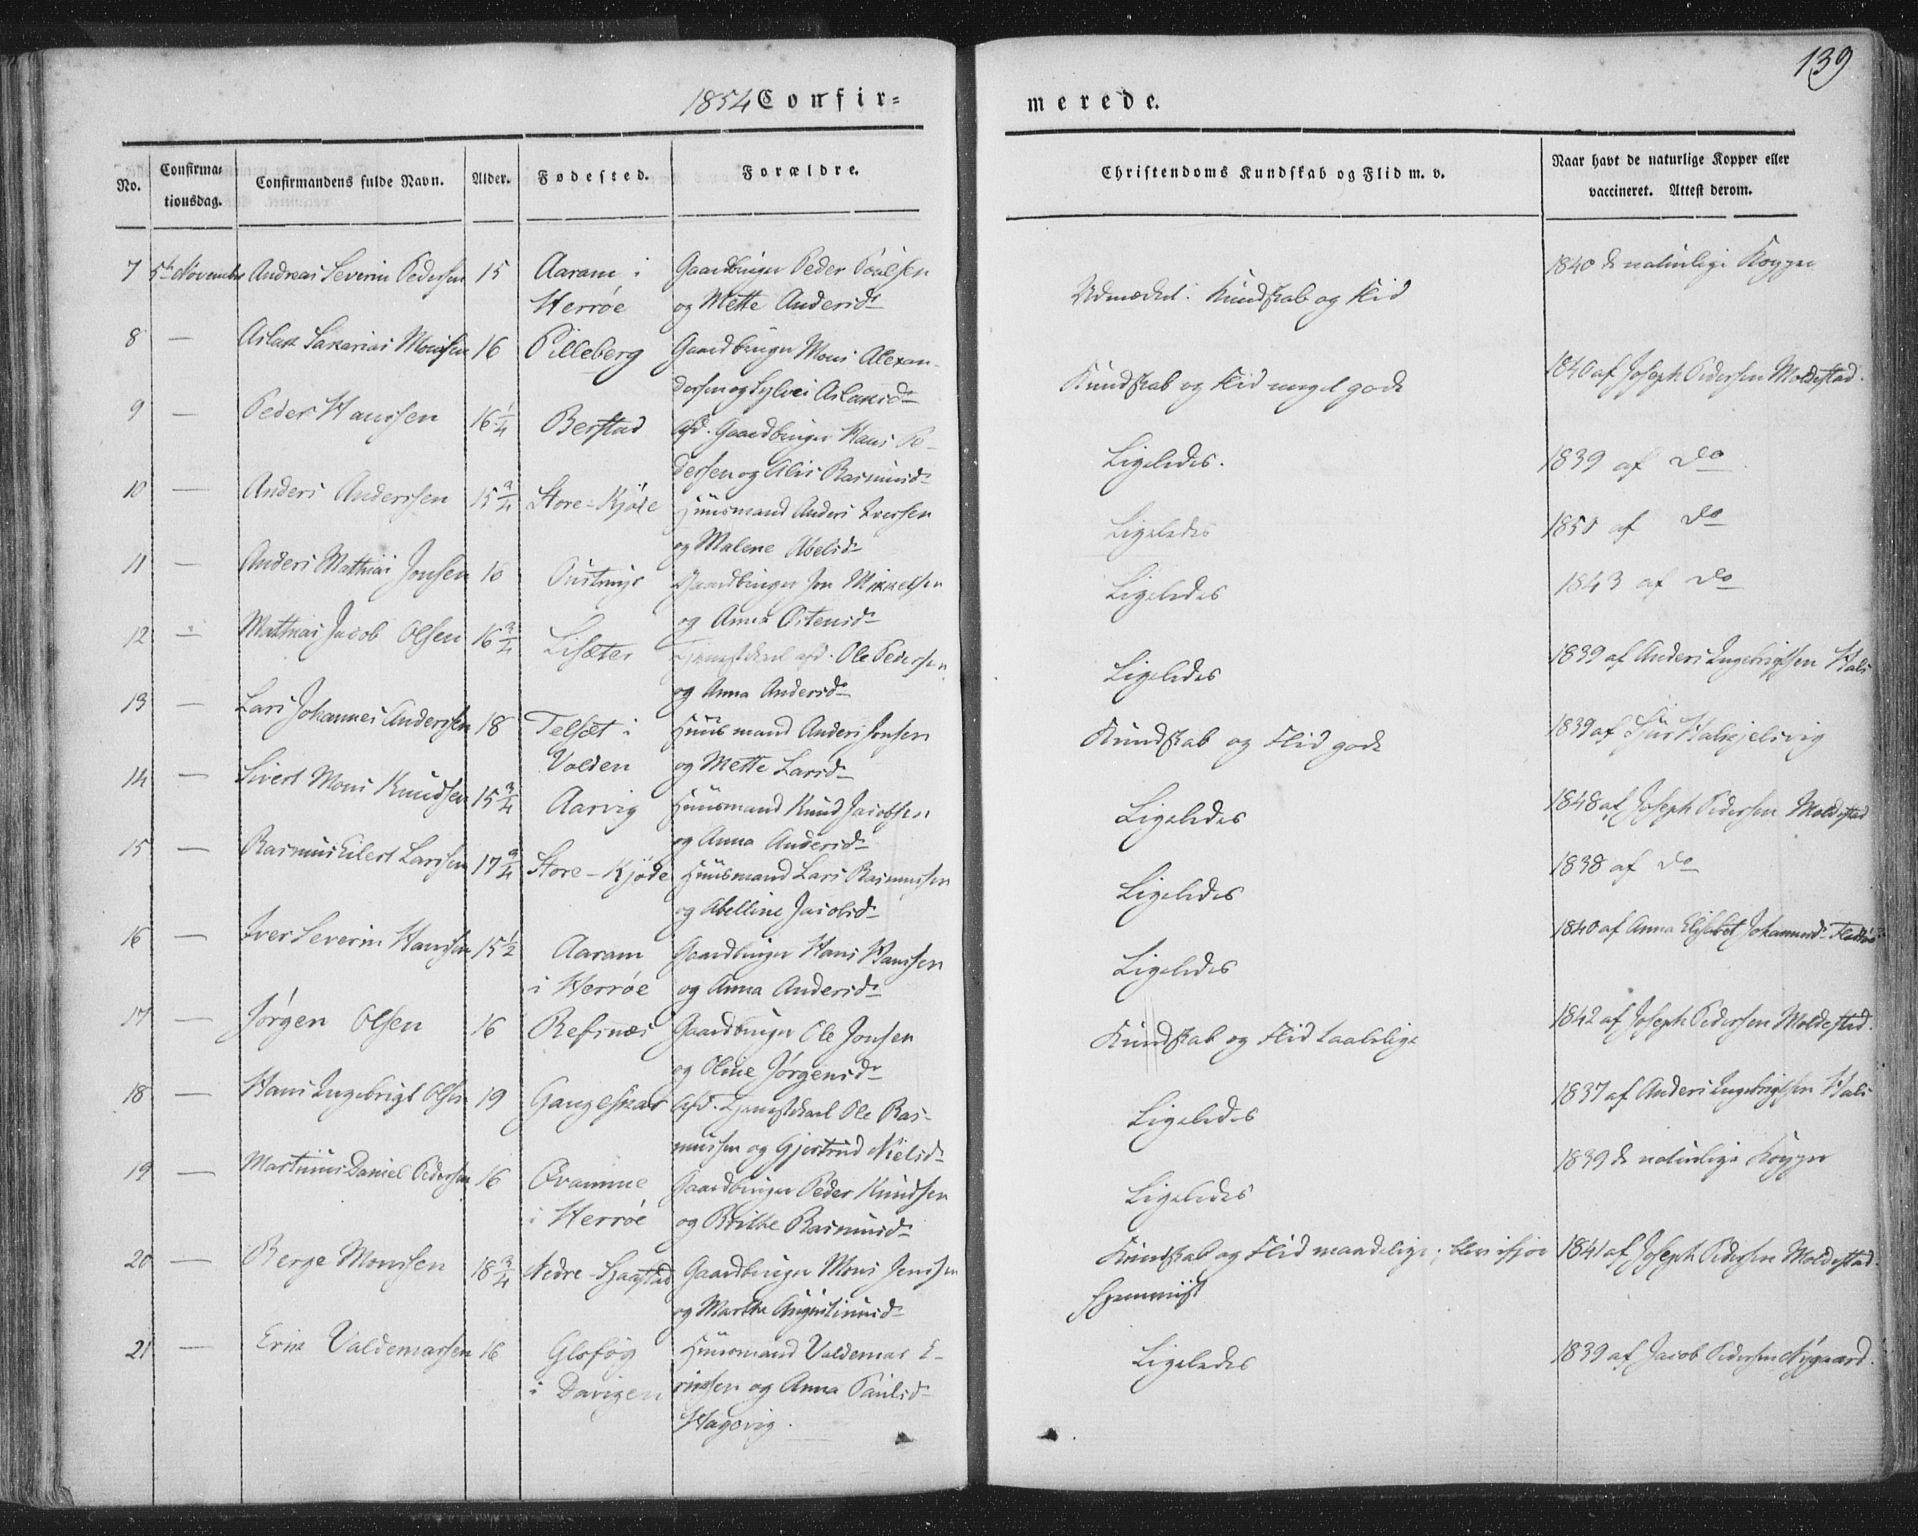 139
1854 Confir=
merede.
No.
Confirma=
tionsdag.
Confirmandens fulde Navn.
Alder.
Fødested.
Forældre.
Christendoms Kundskab og Flid m. v.
Naar havt de naturlige Kopper eller
vaccineret. Attest derom.
7 5te November Andreas Severin Pedersen 15 Aaram i Gaardbruger Peder Poulsen
Herrøe og Mette Andersdr
Udmærket Kundskab og Flid
1840 de naturlige Kopper
8 — Aslak Sakarias Monsen 16 Pilleberg Gaardbruger Mons Alexan-
dersen og Sylvei Aslaksdr
Kundskab og Flid meget gode
1840 af Joseph Pedersen Moldestad.
9 — Peder Hanssen 16 1/4 Berstad afd. Gaardbruger Hans Pe-
dersen og Alis Rasmusdr
Ligeledes.
1839 af do
10 — Anders Anderssen 15 3/4 Store-Kjøde Huusmand Anders Iversen
og Malene Abelsdr
Ligeledes
1851 af do
11 — Anders Mathias Jonsen 16 Gaardbruger Jon Mikkelsen
og Anne Ostensdr
Ligeledes
1843 af do
12 — Mathias Jacob Olsen 16 3/4 Lisæter Tjenestekarl afd. Ole Pedersen
og Anna Andersdr
Ligeledes
1839 af Anders Ingebrigtsen Hals
13 — Lars Johannes Anderssen 18 Telsæt i Huusmand Anders Jonsen
Volden og Mette Larsdr
Kundskab og Flid gode
1839 af Siur
14 — Sivert Mons Knudsen 15 3/4 Aarvig Huusmand Knud Jacobsen
og Anna Andersdr
Ligeledes
1848 af Joseph Pedersen Moldestad
15 — Rasmus Eilert Larssen 17 3/4 Store-Kjøde Huusmand Lars Rasmussen
og Abelline Jacobsdr
Ligeledes
1838 af do
16 — Iver Severin Hanssen 15 1/2 Aaram Gaardbruger Hans Hanssen
i Herrøe og Anna Andersdr
Ligeledes
1840 af Anna Elisabet Johannesdr
17 — Jørgen Olsen 16 Refsnæs Gaardbruger Ole Jonsen
og Oline Jørgensdr
Kundskab og Flid taalelige
1842 af Joseph Pedersen Moldestad.
18 — Hans Ingebrigt Olsen 19 Gangelskar Afd. Tjenestekarl Ole Ras-
mussen og Gjertrud Nielsdr
Ligeledes
1837 af Anders Ingebrigtsen Hals
19 — Martinus Daniel Pedersen 16 Gaardbruger Peder Knudsen
i Herrøe og Brithe Rasmusdr
Ligeledes
1839 de naturlige Kopper
20 — Berge Monssen 18 3/4 Nedre-Gaardbruger Mons Jenssen
og Marthe Augustinusdr
Kundskab og Flid maadelige; blev
1841 af Joseph Pedersen Moldestad.
21 — Erik Valdemarsen 16 Huusmand Valdemar E-
i Davigen riksen og Anna Paulsdr
Hagevig.
Ligeledes
1839 af Jacob Pedersen Nygaard.